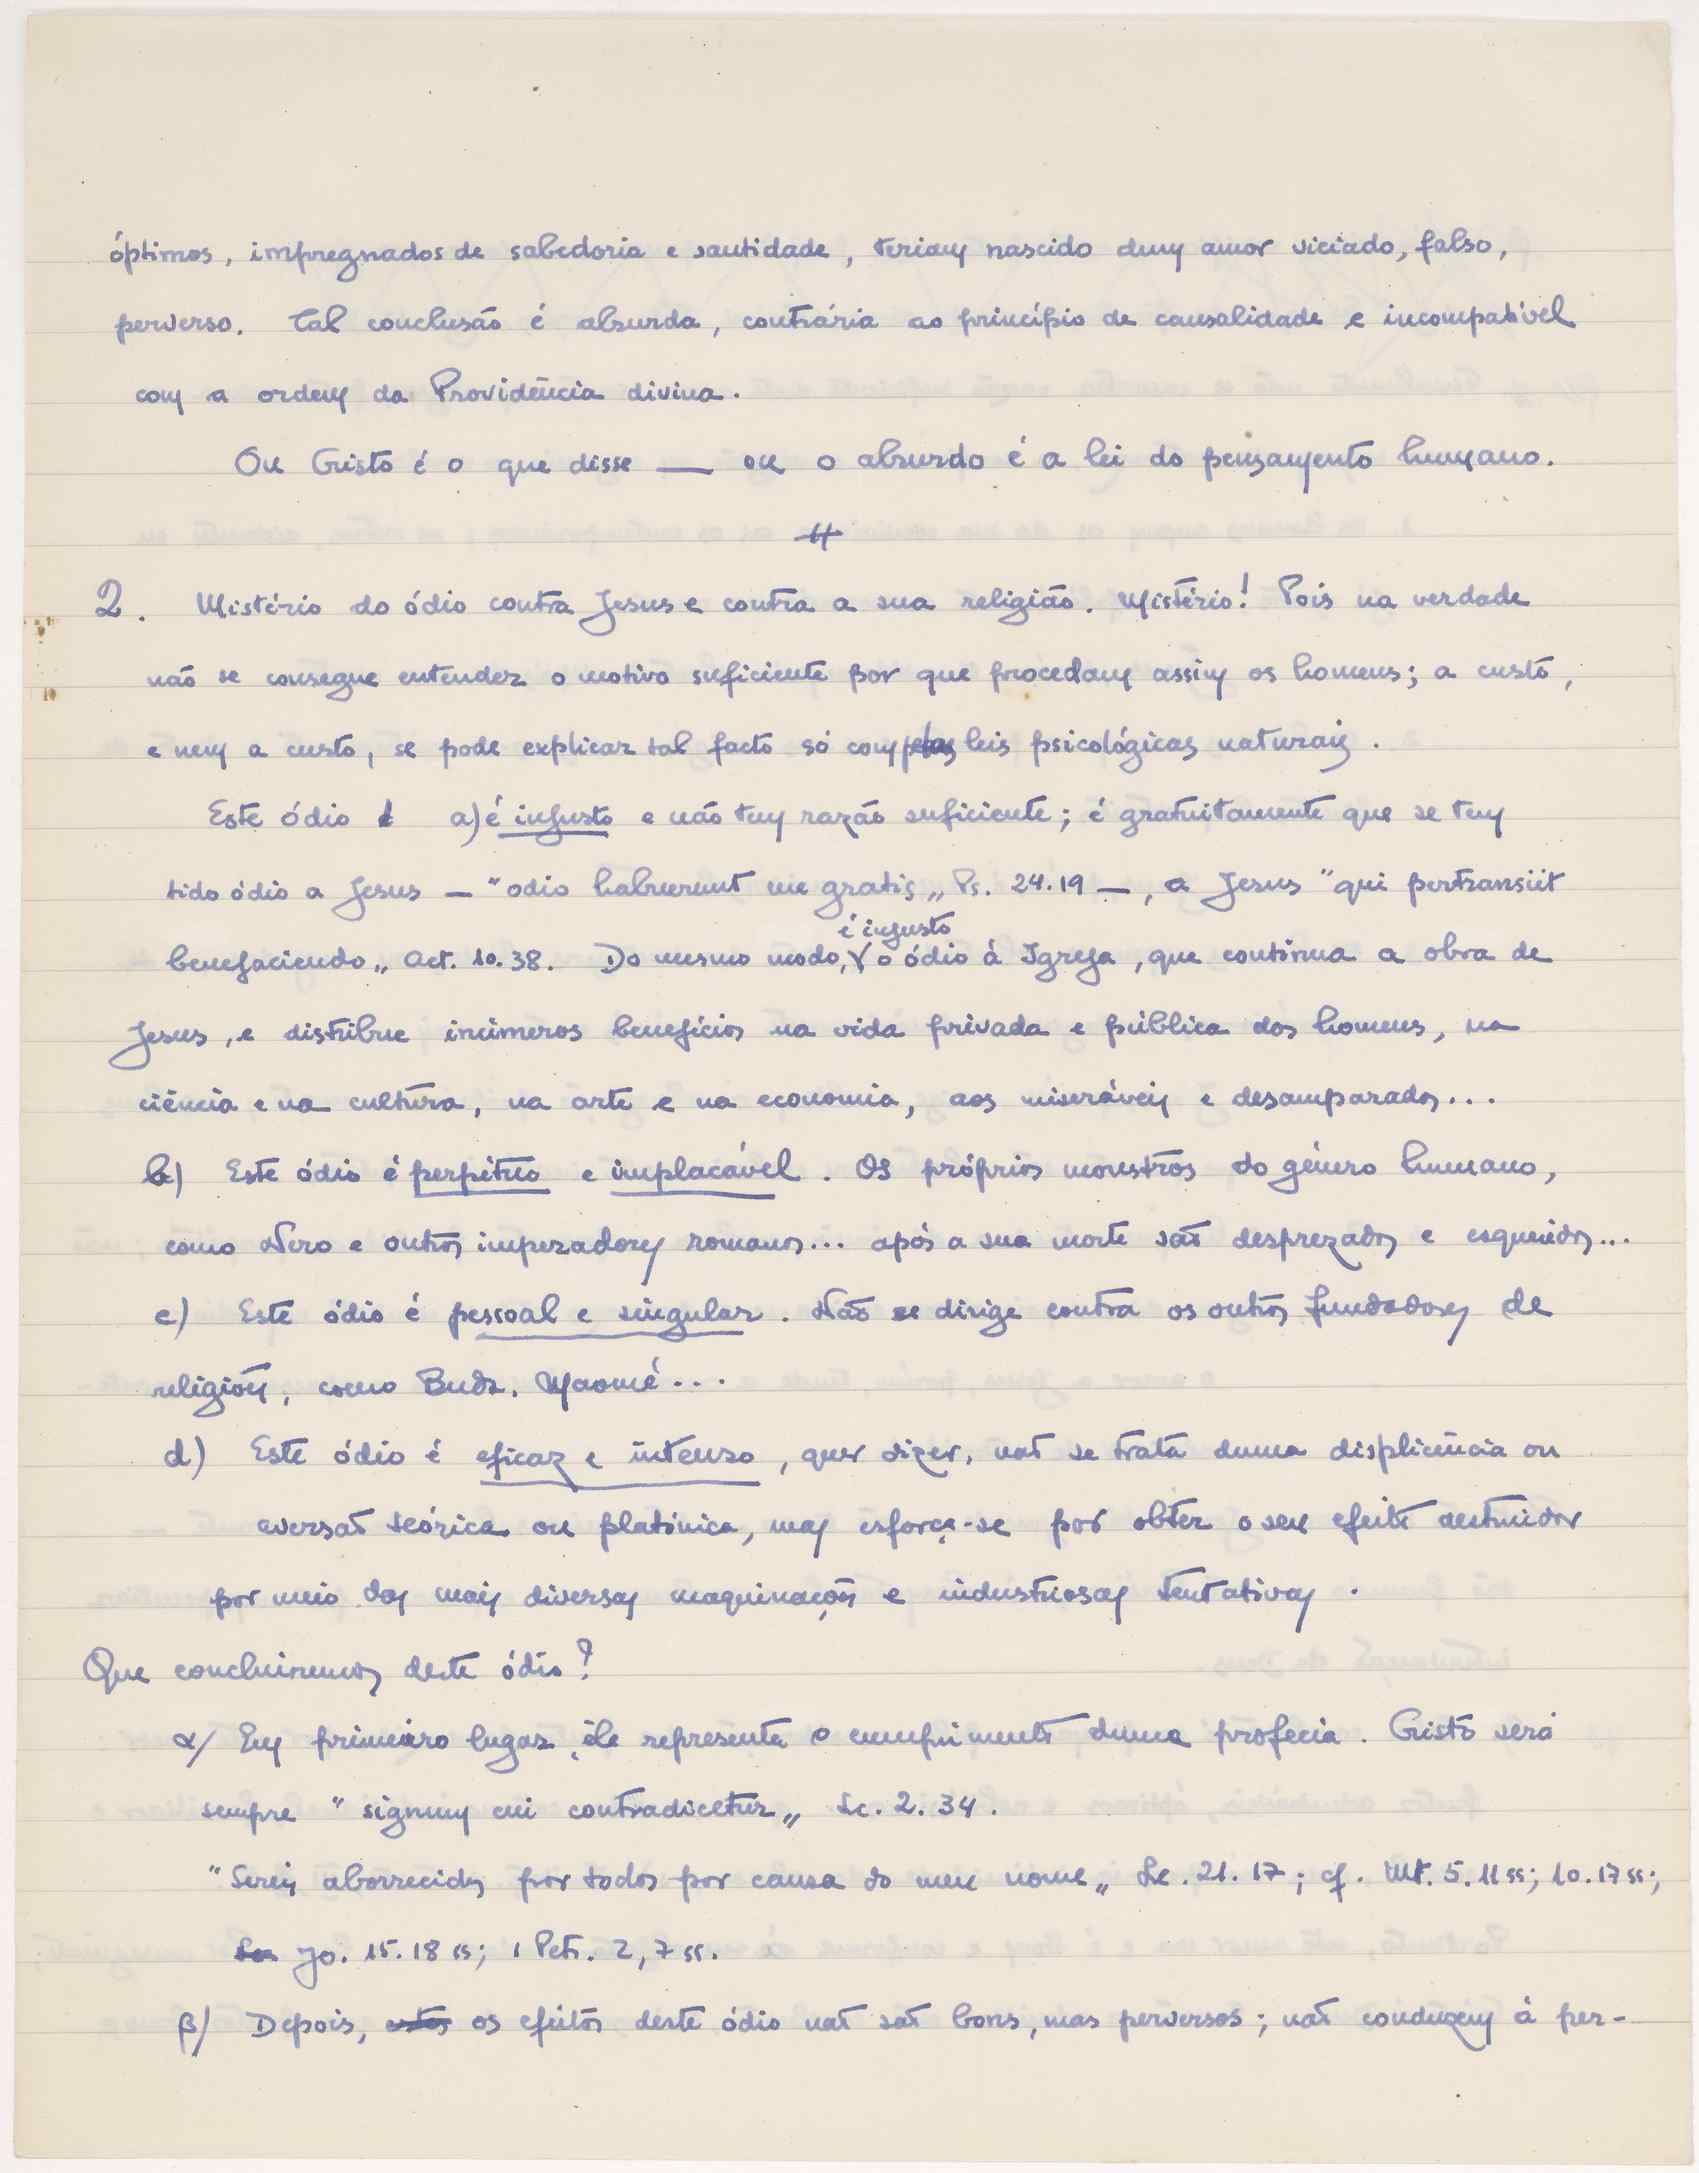 óptimos, impregnados de sabedoria e santidade, teriam nascido dum amor viciado, falso,
perverso. Tal conclusão é absurda, contrária ao princípio de causalidade e incompatível
com a ordem da Providência divina.
Ou Cristo é o que disse — ou o absurdo é a lei do pensamento humano.
2. Mistério do ódio contra Jesus e contra a sua religião. Mistério! Pois na verdade
não se consegue entender o motivo suficiente por que procedam assim os homens; a custo,
e nem a custo, se pode explicar tal facto só com pelas leis psicológicas naturais.
Este ódio a) é injusto e não tem razão suficiente; é gratuitamente que se tem
tido ódio a Jesus — "odio habuerunt me gratis„ Ps. 24.19 —, a Jesus "qui pertransiit
é injusto
benefaciendo„ Act. 10.38. Do mesmo modo, o ódio à Igreja, que continua a obra de
Jesus, e distribue inúmeros benefícios na vida privada e pública dos homens, na
ciência e na cultura, na arte e na economia, aos miseráveis e desamparados...
b) Este ódio é perpétuo e implacável. Os próprios monstros do género humano,
como Nero e outros imperadores romanos... após a sua morte são desprezados e esquecidos...
c) Este ódio é pessoal e singular. Não se dirige contra os outros fundadores de
religiões, como Buda, Maomé...
d) Este ódio é eficaz e intenso, quer dizer, não se trata duma displicência ou
aversão teórica ou platónica, mas esforça-se por obter o seu efeito destruidor
por meio das mais diversas maquinações e industriosas tentativas.
Que concluiremos deste ódio?
α/ Em primeiro lugar, êle representa o cumprimento duma profecia. Cristo será
sempre "signum cui contradicetur„ Lc. 2. 34.
"Sereis aborrecidos por todos por causa do meu nome„ Lc. 21. 17; cf. Mt. 5. 11 ss; 10. 17 ss;
Jo. 15. 18 ss; 1 Petr. 2, 7 ss.
β/ Depois, estes os efeitos deste ódio não são bons, mas perversos; não conduzem à per-